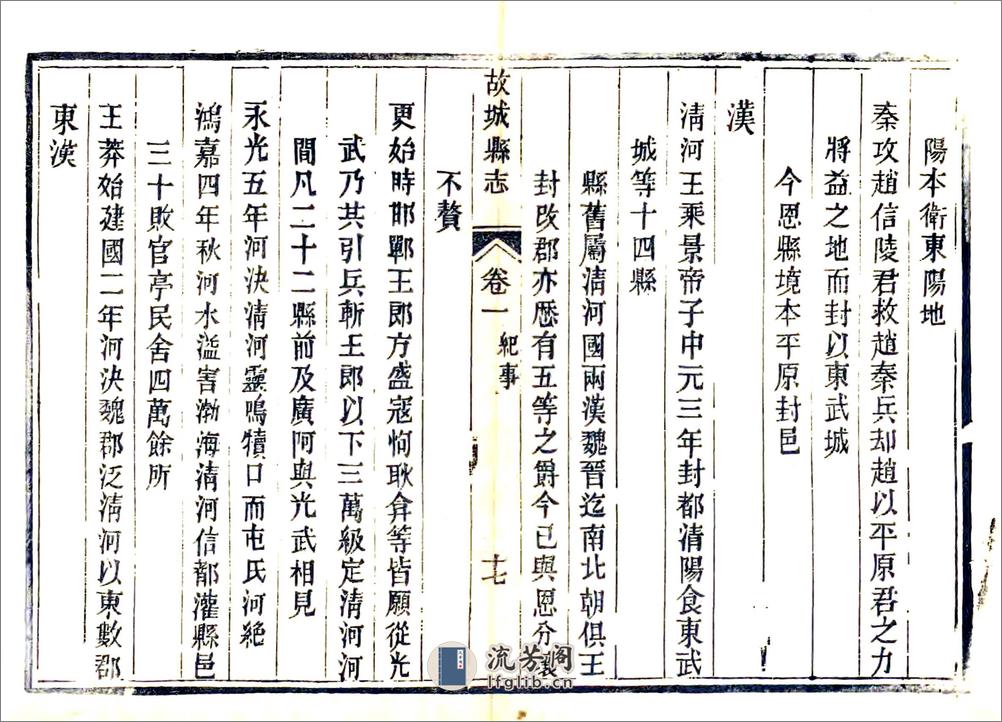 陽本衛東陽地
秦攻趙信陵君救趙秦兵却趙以平原君之力
將益之地而封以東武城
今恩縣境本平原封邑
漢
清河王乘景帝子中元三年封都清陽食東武
城等十四縣
縣舊屬清河國兩漢魏晉迄南北朝俱王
封改郡亦歷有五等之爵今已與恩分襄
不贅
故城縣志
卷一
紀事
十七
更始時邯鄲王郎方盛寇恂耿弇等皆願從光
武乃共引兵斬王郎以下三萬級定清河河
間凡二十二縣前及廣阿與光武相見
永光五年河決清河靈鳴犢口而屯氏河絶
鴻嘉四年秋河水溢害渤海清河信都灌縣邑
三十敗官亭民舍四萬餘所
王莽始建國二年河決魏郡泛清河以東數郡
東漢
流芳阁
lfglib.cn